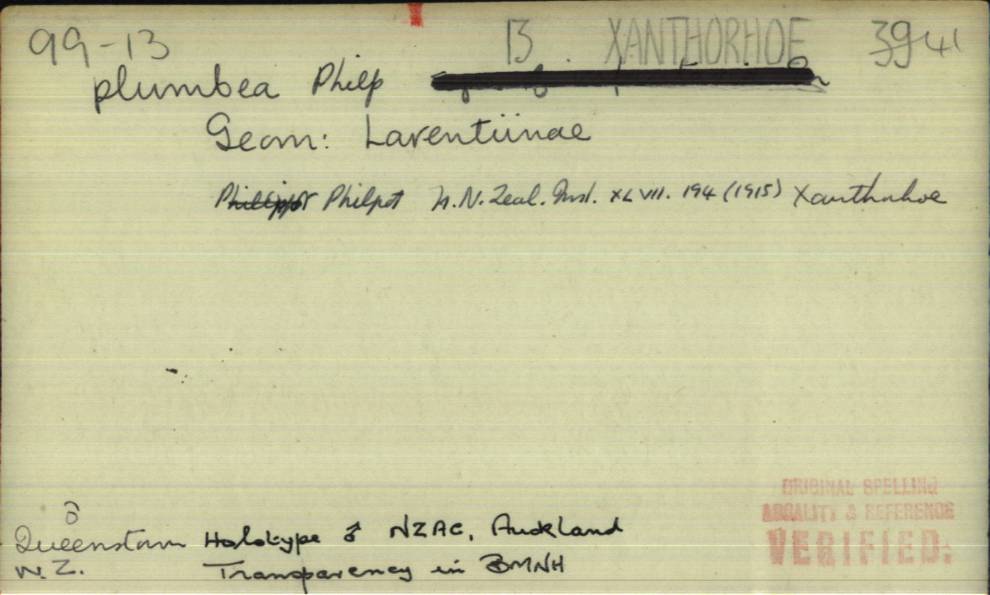 99-13 13 XANTHORHOE 3941
plumbea Philp
Geom: Larentiinae
Philpot N. Zeal. Inst. XLVII. 194 (1915) Xanthorhoe
♂
Queenstown
N.Z.
Holotype ♂ NZAC, Auckland
Transparency in BMNH
ORIGINAL SPELLING
LOCALITY & REFERENCE
VERIFIED: